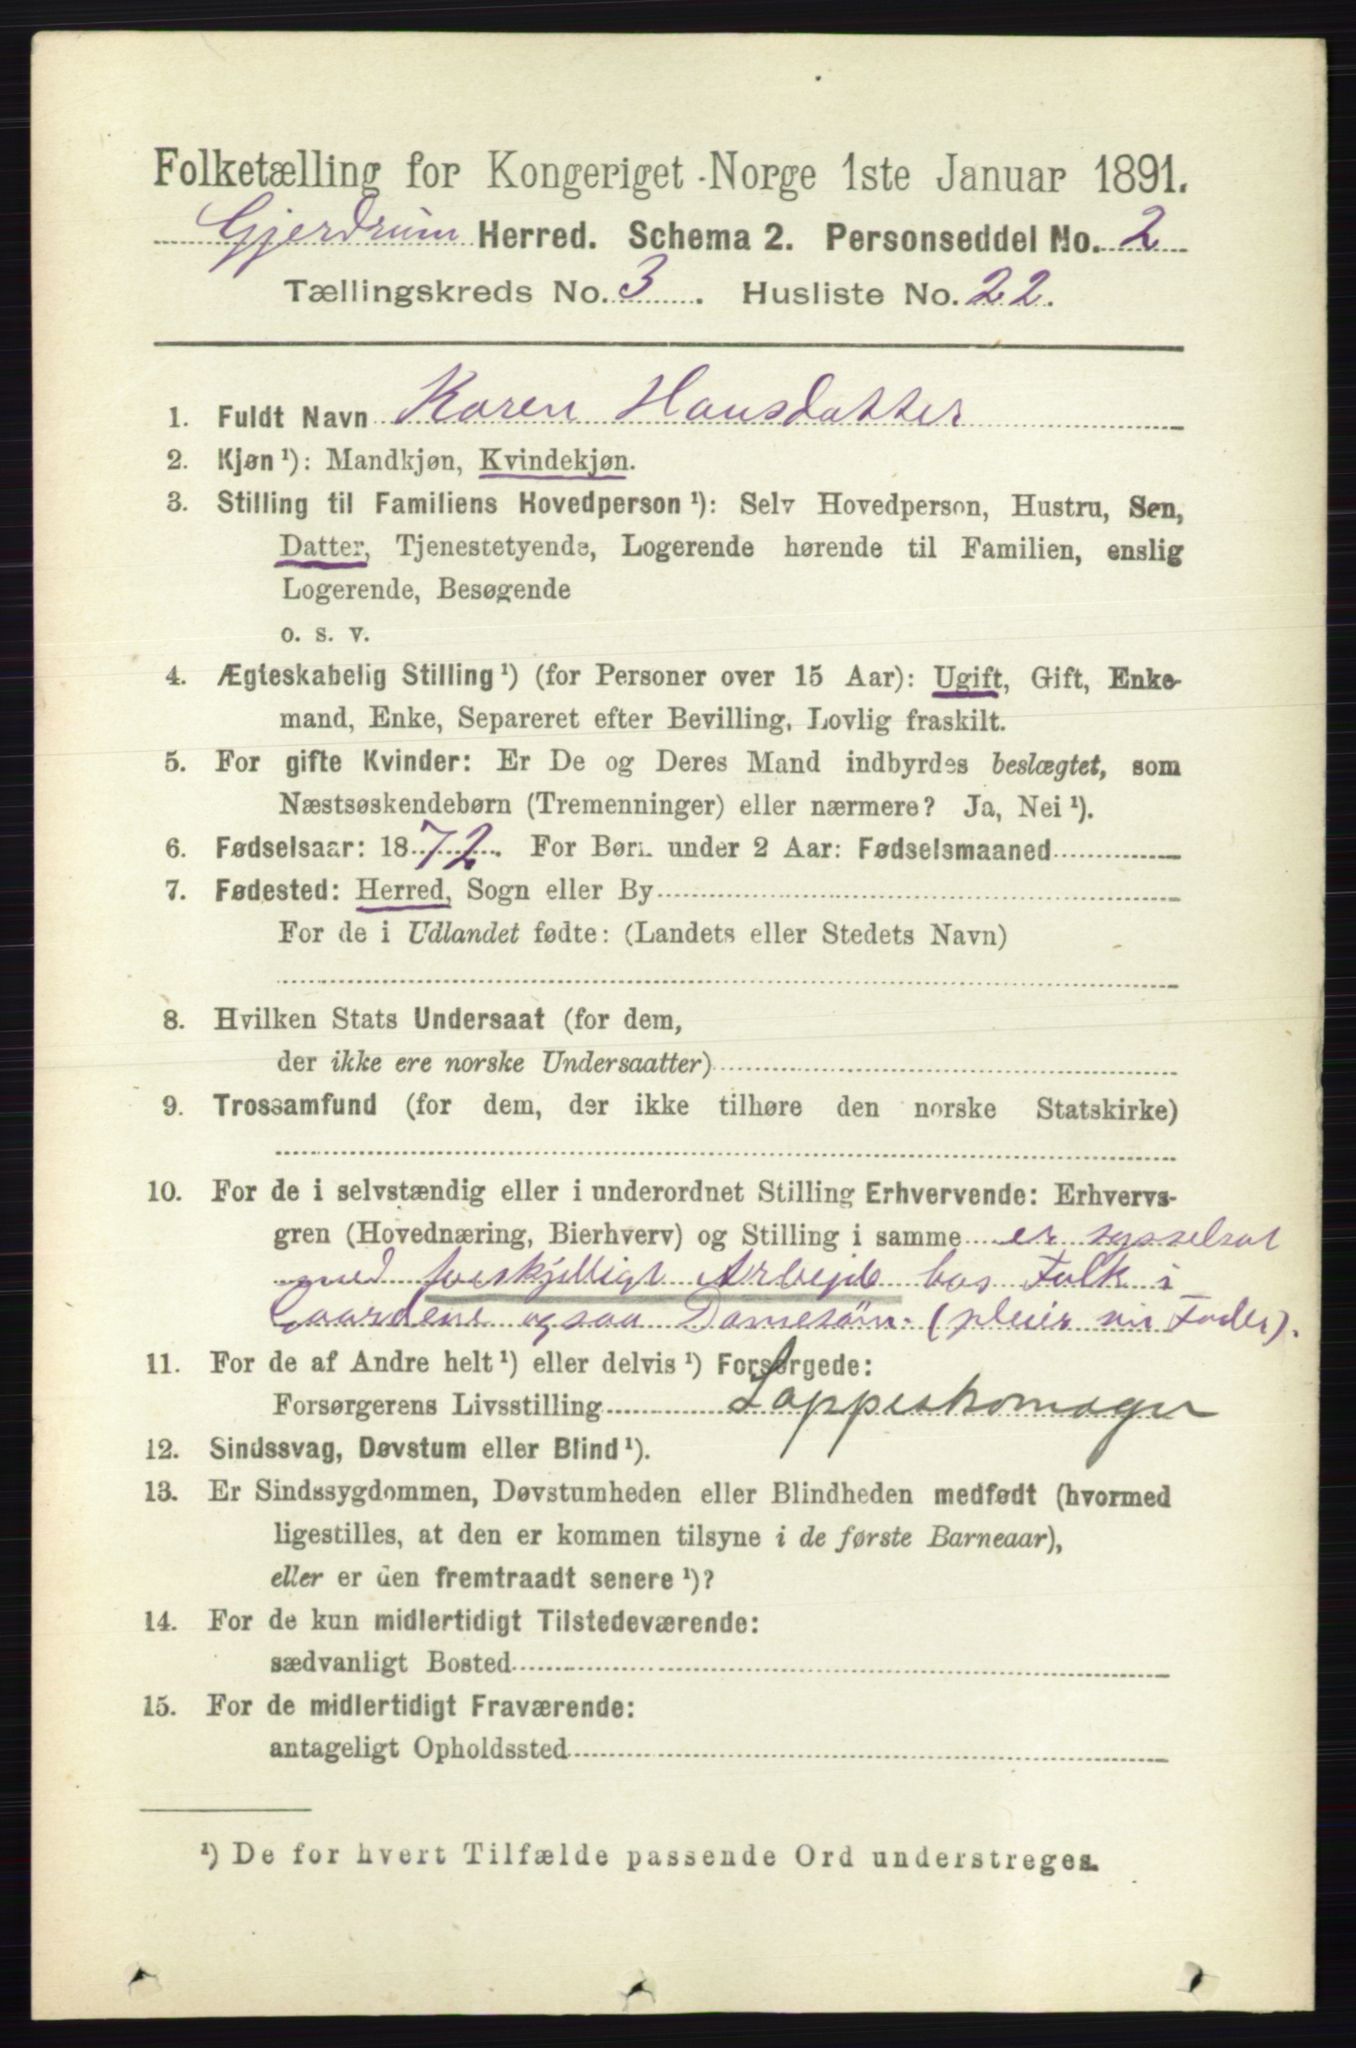 Folketælling for Kongeriget Norge 1ste Januar 1891.
Gjerdrum Herred. Schema 2. Personseddel No. 2
Tællingskreds No. 3. Husliste No. 22.
1. Fuldt Navn Karen Hansdatter
2. Kjøn ¹): Mandkjøn, Kvindekjøn.
3. Stilling til Familiens Hovedperson ¹): Selv Hovedperson, Hustru, Søn,
Datter, Tjenestetyende, Logerende hørende til Familien, enslig
Logerende, Besøgende
o. s. v.
4. Ægteskabelig Stilling ¹) (for Personer over 15 Aar): Ugift, Gift, Enke-
mand, Enke, Separeret efter Bevilling, Lovlig fraskilt.
5. For gifte Kvinder: Er De og Deres Mand indbyrdes beslægtet, som
Næstsøskendebørn (Tremenninger) eller nærmere? Ja, Nei ¹).
6. Fødselsaar: 1872. For Børn under 2 Aar: Fødselsmaaned
7. Fødested: Herred, Sogn eller By
For de i Udlandet fødte: (Landets eller Stedets Navn)
8. Hvilken Stats Undersaat (for dem,
der ikke ere norske Undersaatter)
9. Trossamfund (for dem, der ikke tilhøre den norske Statskirke)
10. For de i selvstændig eller i underordnet Stilling Erhvervende: Erhvervs-
gren (Hovednæring, Bierhverv) og Stilling i samme er sysselsat
med forskjelligt Arbejde hos Folk i
Gaardene ogsaa Damesøm. (pleier sin Fader).
11. For de af Andre helt ¹) eller delvis ¹) Forsørgede:
Forsørgerens Livsstilling Lappeskomager
12. Sindssvag, Døvstum eller Blind ¹).
13. Er Sindssygdommen, Døvstumheden eller Blindheden medfødt (hvormed
ligestilles, at den er kommen tilsyne i de første Barneaar),
eller er den fremtraadt senere ¹)?
14. For de kun midlertidigt Tilstedeværende:
sædvanligt Bosted
15. For de midlertidigt Fraværende:
antageligt Opholdssted
¹) De for hvert Tilfælde passende Ord understreges.